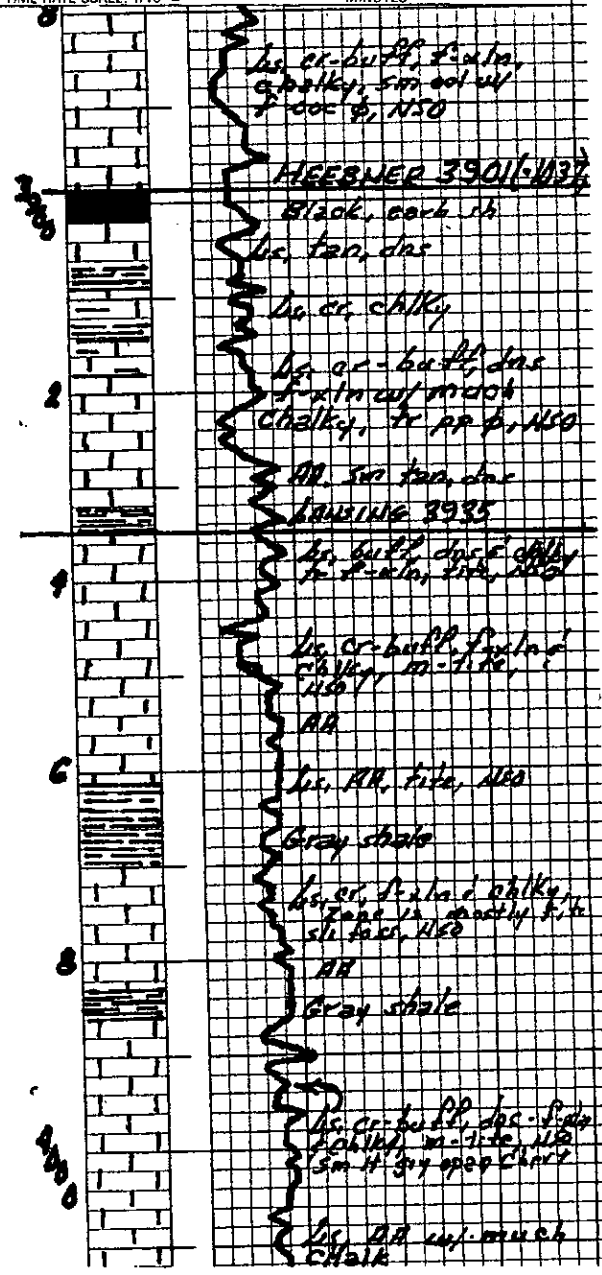 TIME RATE SCALE: 
MINUTES
8
Ls, cr-buff, f-xln,
chalky, sm ool w/
f-ooc φ, NSO
HEEBNER 3901(-1037)
3900
Black, carb sh
Ls, tan, dns
Ls, cr, chlky
Ls, cr-buff, dns
2
f-xln w/ much
Chalky, tr pp φ, NSO
AA, Sm tan, dns
LANSING 3935
Ls, buff, dns & chlky
4
tr f-xln, tite, NSO
Ls, cr-buff, f-xln &
Chlky, m-tite,
NSO
AA
6
Ls, AA, tite, NSO
Gray shale
Ls, cr, f-xln & chlky,
Zone is mostly tite
sli foss, NSO
8
AA
Gray shale
Ls, cr-buff, dns-f-xln
4000
& chlky, m-tite, NSO
Sm lt gry opaq Chert
Ls, AA w/ much
CHalk